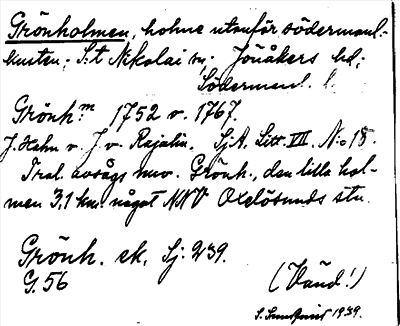 Grönholmen, holme utanför södermanl.-
kusten; S:t Nikolai sn; Jönåkers hd;
Söderman. l.
Grönh.m 1752 o. 1767.
J. Hahn o. J. v. Rajalin. SjA. Litt. VII. N:o 18.
Trol. avsågs nuv. Grönh., den lilla hol-
men 3,1 km. något NNV Oxelösunds stn.
Grönh. ek. Sj. 239.
G. 56 (Vänd!)
1939.